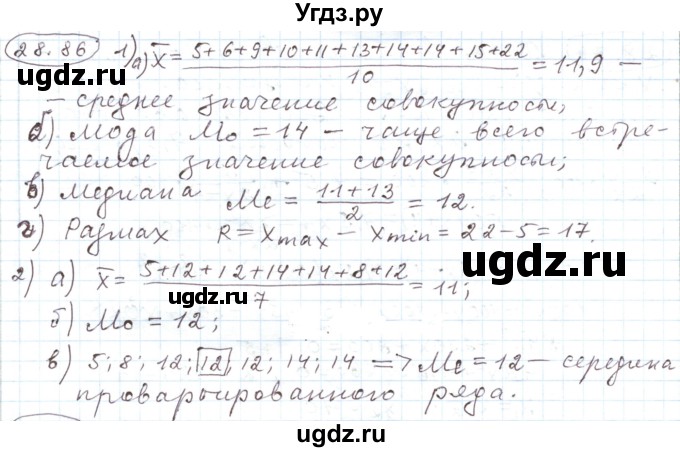 Угдз.ру
28.86 1) а) x̄ = (5+6+9+10+11+13+14+14+15+22)/10 = 11,9 –
– среднее значение совокупносы;
б) Мода Mo = 14 – чаще всего встре-
чаемое значение совокупносы;
в) Медиана Me = (11+13)/2 = 12.
г) Размах R = Xmax – Xmin = 22-5=17.
2) а) x̄ = (5+12+12+14+14+8+12)/7 = 11;
б) Mo = 12;
в) 5; 8; 12; 12, 12; 14; 14 => Me = 12 – середина
проварьированного ряда.
ugdz.ru
ugdz.ru
ugdz.ru
ugdz.ru
ugdz.ru
ugdz.ru
ugdz.ru
ugdz.ru
ugdz.ru